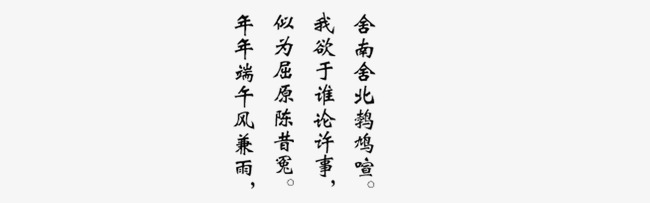 年年端午风兼雨，
似为屈原陈昔冤。
我欲于谁论许事，
舍南舍北鹁鸠喧。